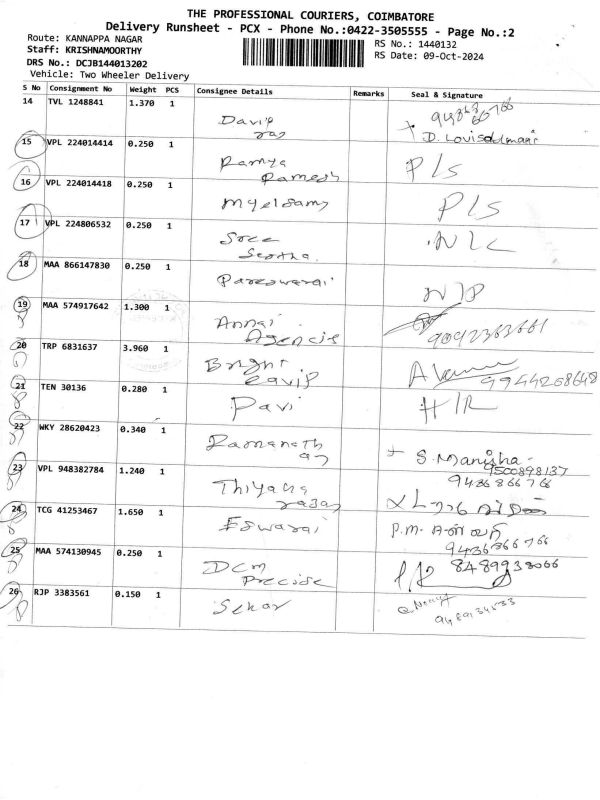 THE PROFESSIONAL COURIERS, COIMBATORE
Delivery Runsheet - PCX - Phone No.:0422-3505555 - Page No.:2
Route: KANNAPPA NAGAR
Staff: KRISHNAMOORTHY
RS No.: 1440132
DRS No.: DCJB144013202
RS Date: 09-Oct-2024
Vehicle: Two Wheeler Delivery
S No Consignment No Weight PCS Consignee Details Remarks Seal & Signature
14 TVL 1248841 1.370 1
David
raj
15 VPL 224014414 0.250 1
Ramya
Ramesh
P/s
16 VPL 224014418 0.250 1
Myelsamy
P/s
17 VPL 224806532 0.250 1
Sree
N/C
18 MAA 866147830 0.250 1
Pareswarai
N/P
19 MAA 574917642 1.300 1
Annai
Agencis
9092363661
20 TRP 6831637 3.960 1
Bright
9944208648
21 TEN 30136 0.280 1
Pavi
H/R
22 WKY 28620423 0.340 1
Ramanath
an
S. Manisha
9500898137
23 VPL 948382784 1.240 1
Thiyaga
rajan
9486866766
24 TCG 41253467 1.650 1
Eswarai
P.M. அன்வர்
25 MAA 574130945 0.250 1
DCM
Precise
8489938066
26 RJP 3383561 0.150 1
Sekar